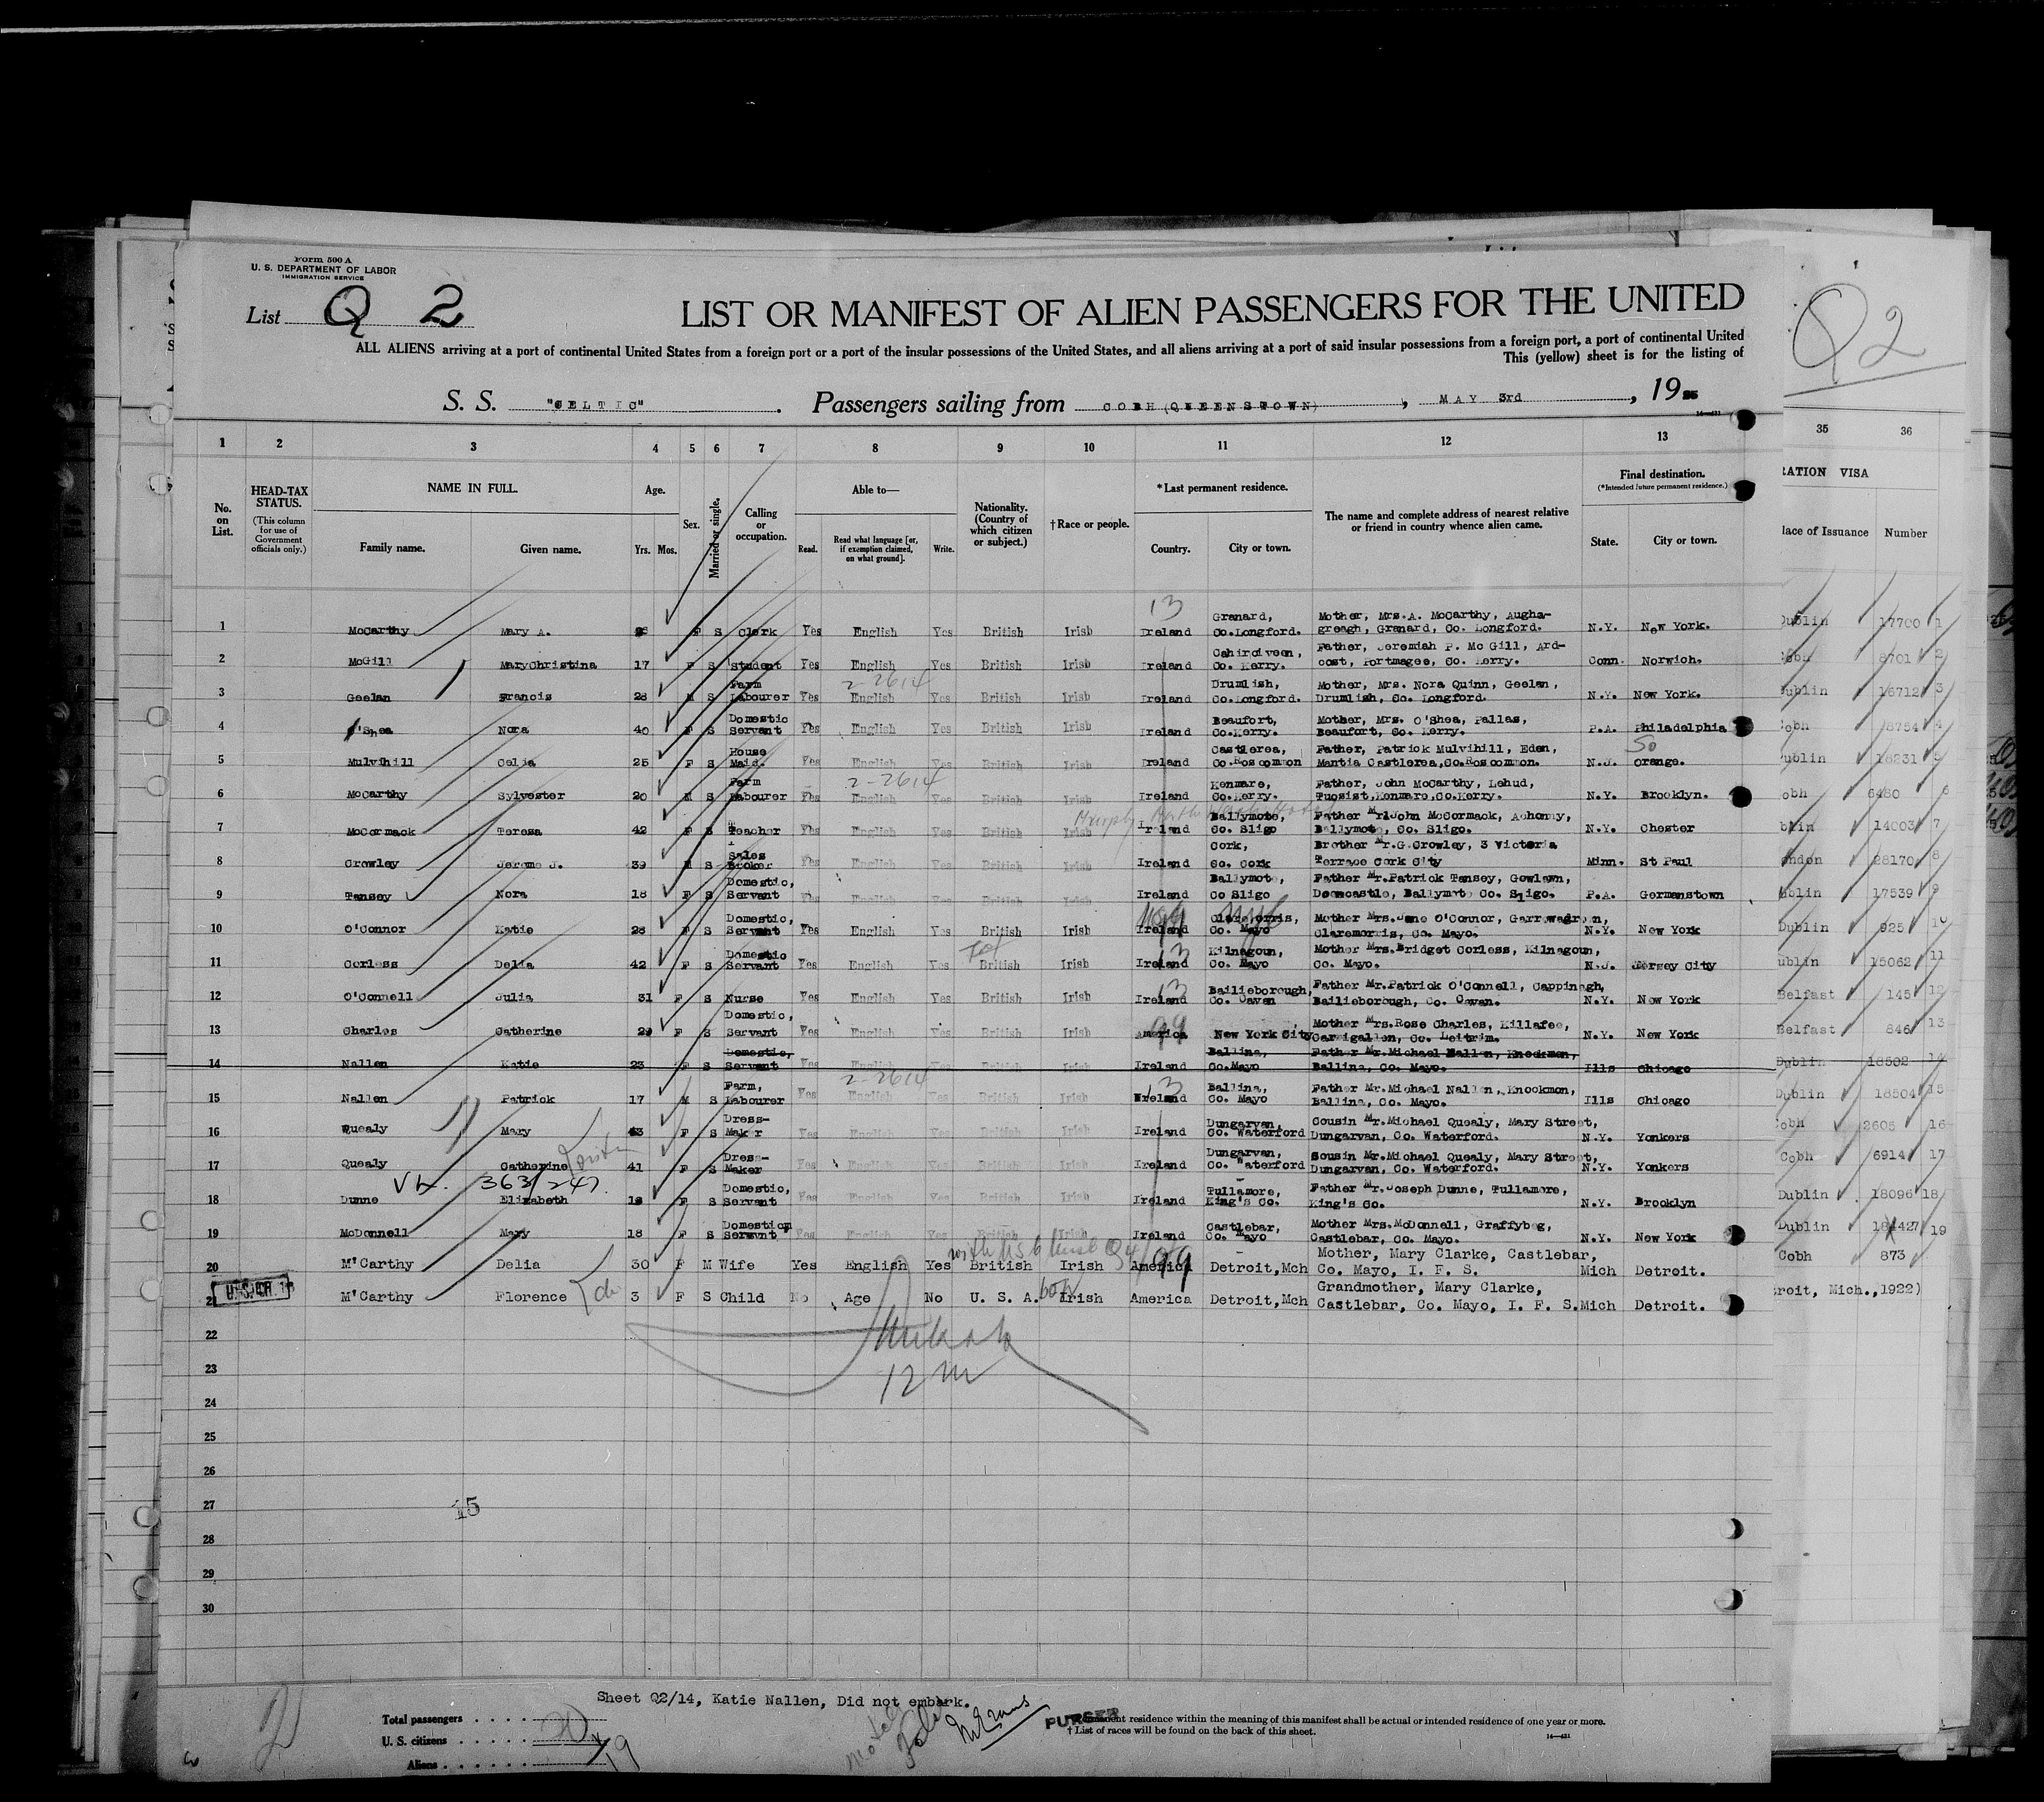 Form 500 A
U. S. DEPARTMENT OF LABOR
IMMIGRATION SERVICE
List Q 2
LIST OR MANIFEST OF ALIEN PASSENGERS FOR THE UNITED
ALL ALIENS arriving at a port of continental United States from a foreign port or a port of the insular possessions of the United States, and all aliens arriving at a port of said insular possessions from a foreign port, a port of continental United
This (yellow) sheet is for the listing of
Q2
S. S. "CELTIC". Passengers sailing from COBH (QUEENSTOWN), MAY 3rd, 19
1 2 3 4 5 6 7 8 9 10 11 12 13 35 36
No. on List. HEAD-TAX STATUS. (This column for use of Government officials only.) NAME IN FULL. Age. Sex. Married or single. Calling or occupation. Able to— Nationality. (Country of which citizen or subject.) †Race or people. *Last permanent residence. The name and complete address of nearest relative or friend in country whence alien came. Final destination. (*Intended future permanent residence.) RATION VISA
Family name. Given name. Yrs. Mos. Read. Read what language [or, if exemption claimed, on what ground]. Write. Country. City or town. State. City or town. lace of Issuance Number
1 McCarthy Mary A. F S Clerk Yes English Yes British Irish Ireland Granard, Co.Longford. Mother, Mrs.A. McCarthy, Augha-greagh, Granard, Co. Longford. N.Y. New York. Dublin 17700 1
2 McGill MaryChristina 17 F S Student Yes English Yes British Irish Ireland Cahirciveen, Co. Kerry. Father, Jeremiah P. Mc Gill, Ard-cost, Portmagee, Co. Kerry. Conn. Norwich. Cobh 8701 2
3 Geelan Francis 28 M S Farm Labourer Yes English Yes British Irish Ireland Drumlish, Co.Longford. Mother, Mrs. Nora Quinn, Geelan, Drumlish, Co. Longford. N.Y. New York. Dublin 16712 3
4 O'Shea Nora 40 F S Domestic Servant Yes English Yes British Irish Ireland Beaufort, Co.Kerry. Mother, Mrs. O'Shea, Pallas, Beaufort, Co. Kerry. P.A. Philadelphia Cobh 8754 4
5 Mulvihill Celia 25 F S House Maid. Yes English Yes British Irish Ireland Castlerea, Co.Roscommon Father, Patrick Mulvihill, Eden, Mantia Castlerea,Co.Roscommon. N.J. So Orange. ublin 18231 5
6 McCarthy Sylvester 20 M S Farm Labourer Yes English Yes British Irish Ireland Kenmare, Co.Kerry. Father, John McCarthy, Lehud, Tuosist,Kenmare,Co.Kerry. N.Y. Brooklyn. obh 6480 6
7 McCormack Teresa 42 F S Teacher Yes English Yes British Irish Ireland Ballymote, Co. Sligo Father Mr.John McCormack, Achonry, Ballymote, Co. Sligo. N.Y. Chester blin 14003 7
8 Crowley Jerome J. 39 M S Sales Broker Yes English Yes British Irish Ireland Cork, Co. Cork Brother Mr.G.Crowley, 3 Victoria Terrace Cork City Minn. St Paul ondon 28170 8
9 Tansey Nora 18 F S Domestic, Servant Yes English Yes British Irish Ireland Ballymote, Co Sligo Father Mr.Patrick Tansey, Gowlawn, Doomcastle, Ballymote Co. Sligo. P.A. Germanstown ublin 17539 9
10 O'Connor Katie 28 F S Domestic, Servant Yes English Yes British Irish Ireland Claremorris, Co. Mayo Mother Mrs.Jane O'Connor, Garrowadreen, Claremorris, Co. Mayo. N.Y. New York Dublin 925 10
11 Corless Delia 42 F S Domestic Servant Yes English Yes British Irish Ireland Kilnagoun, Co. Mayo Mother Mrs.Bridget Corless, Kilnagoun, Co. Mayo. N.J. Jersey City ublin 15062 11
12 O'Connell Julia 31 F S Nurse Yes English Yes British Irish Ireland Bailieborough, Co. Cavan Father Mr.Patrick O'Connell, Cappinagh, Bailieborough, Co. Cavan. N.Y. New York Belfast 145 12
13 Charles Catherine 29 F S Domestic, Servant Yes English Yes British Irish America New York City Mother Mrs.Rose Charles, Killafee, Carrigallen, Co. Leitrim. N.Y. New York Belfast 846 13
14 Nallen Katie 23 F S Domestic, Servant Yes English Yes British Irish Ireland Ballina, Co.Mayo Father Mr.Michael Nallen, Knockmon, Ballina, Co. Mayo. Ills Chicago Dublin 18502 14
15 Nallen Patrick 17 M S Farm, Labourer Yes English Yes British Irish Ireland Ballina, Co. Mayo Father Mr.Michael Nallen, Knockmon, Ballina, Co. Mayo. Ills Chicago Dublin 18504 15
16 Quealy Mary 43 F S Dress-Maker Yes English Yes British Irish Ireland Dungarvan, Co. Waterford Cousin Mr.Michael Quealy, Mary Street, Dungarvan, Co. Waterford. N.Y. Yonkers Cobh 2605 16
17 Quealy Catherine 41 F S Dress-Maker Yes English Yes British Irish Ireland Dungarvan, Co. Waterford Cousin Mr.Michael Quealy, Mary Street, Dungarvan, Co. Waterford. N.Y. Yonkers Cobh 6914 17
18 Dunne Elizabeth 19 F S Domestic, Servant Yes English Yes British Irish Ireland Tullamore, King's Co. Father Mr.Joseph Dunne, Tullamore, King's Co. N.Y. Brooklyn Dublin 18096 18
19 McDonnell Mary 18 F S Domestic, Servant Yes English Yes British Irish Ireland Castlebar, Co. Mayo Mother Mrs.McDonnell, Graffybeg, Castlebar, Co. Mayo. N.Y. New York Dublin 19
20 M'Carthy Delia 30 F M Wife Yes English Yes British Irish America Detroit,Mch Mother, Mary Clarke, Castlebar, Co. Mayo, I. F. S. Mich Detroit. Cobh 873
21 M'Carthy Florence 3 F S Child No Age No U. S. A. Irish America Detroit,Mch Grandmother, Mary Clarke, Castlebar, Co. Mayo, I. F. S. Mich Detroit. roit, Mich.,1922)
22
23
12 m
24
25
26
27
15
28
29
30
Sheet Q2/14, Katie Nallen, Did not embark.
Total passengers
U. S. citizens
Aliens 19
PURSER
Permanent residence within the meaning of this manifest shall be actual or intended residence of one year or more.
† List of races will be found on the back of this sheet.